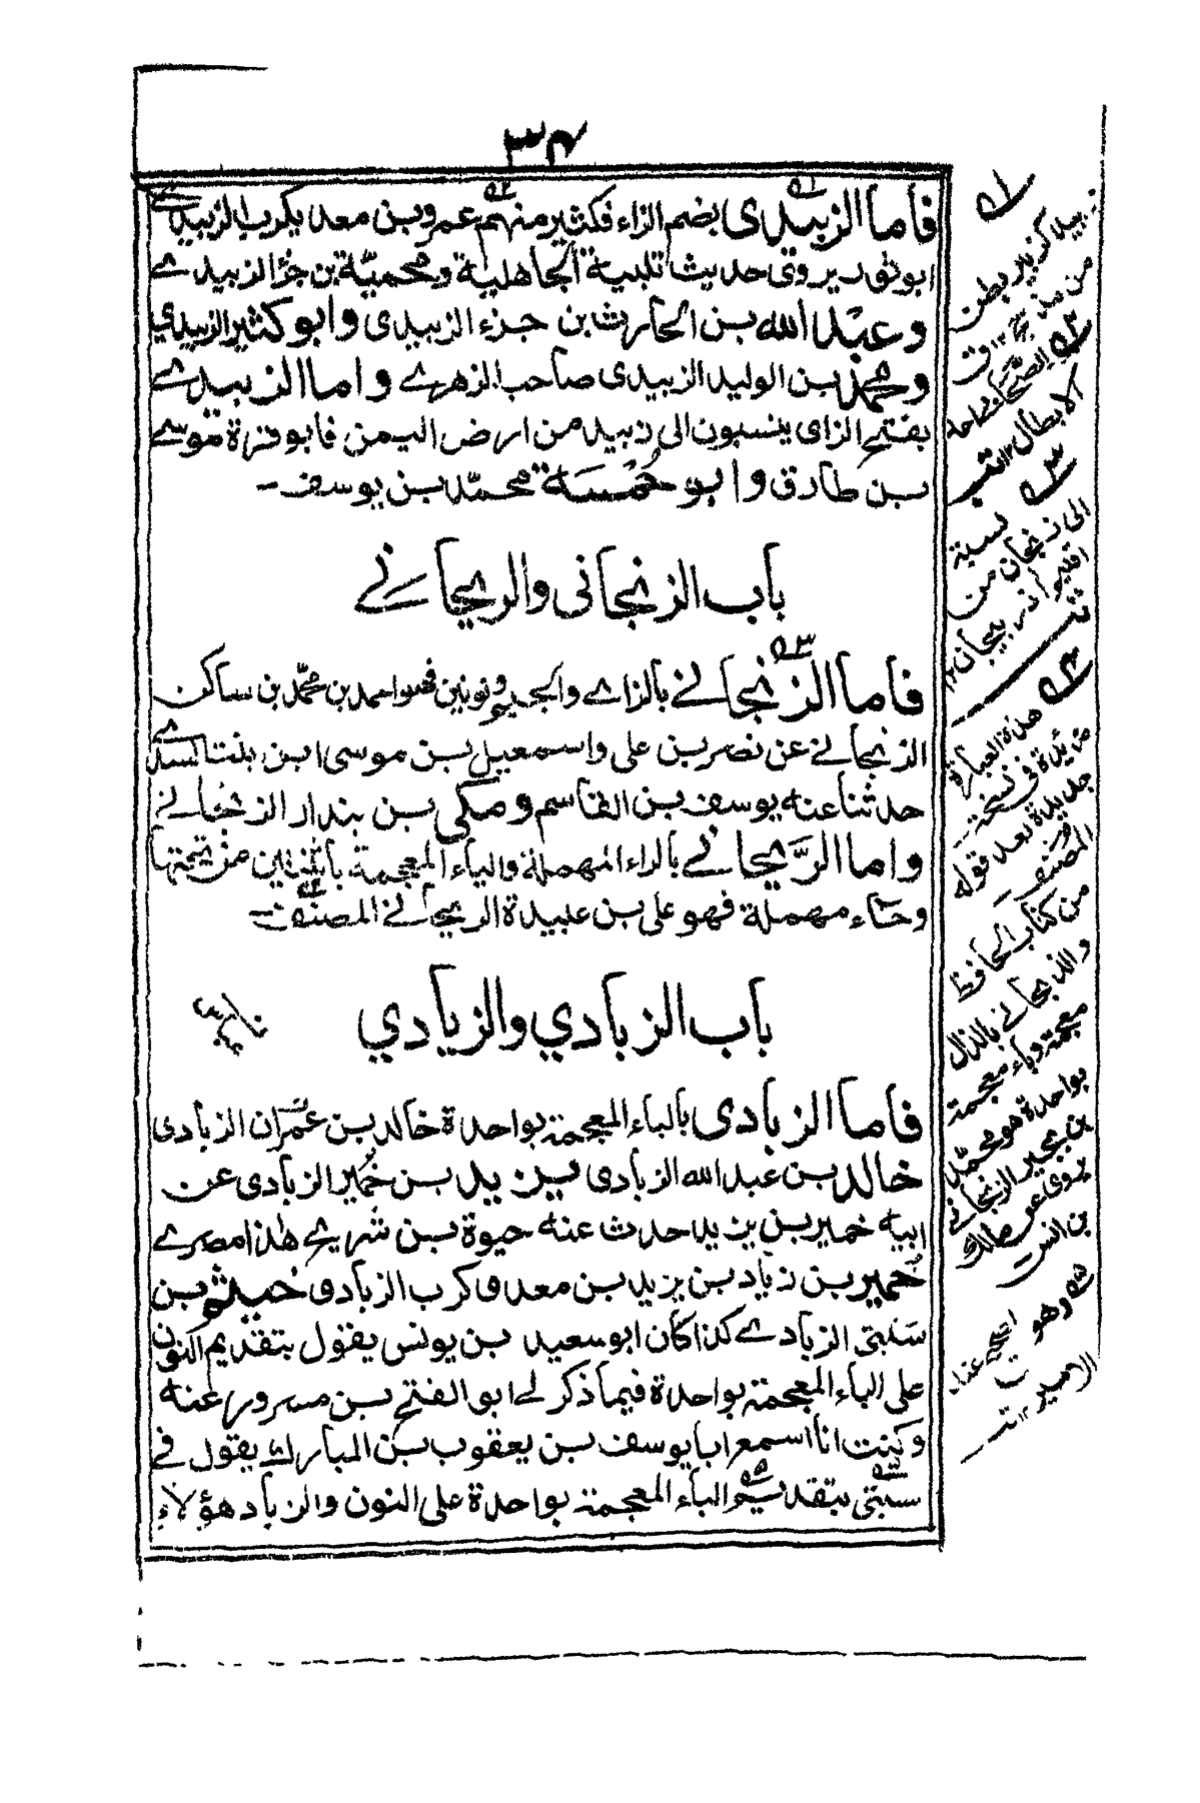 ٣٤
فاما الزبيدى بضم الزاء فكثير منهم عمرو بن معد يكرب الزبيدے
ابو ثور يروى حديث تلبية الجاهلية ومحمية بن جزأ الزبيدے
وعبد الله بن الحارث بن جزء الزبيدى وابو كثير الزبيدي
ومحمد بن الوليد الزبيدى صاحب الزهرے واما الزبيدے
بفتح الزاى ينسبون الى زبيد من ارض اليمن فابو قرة موسے
بن طارق وابو حمسة محمد بن يوسف -
باب الزنجانى والريحانے
فاما الزنجانے بالزاے والجيم ونونين فهو احمد بن محمد بن ساكن
الزنجانے عن نصر بن على واسمعيل بن موسى ابن بنت السدے
حدثنا عنه يوسف بن القاسم ومكى بن بندار الزنجانے
واما الريحانے بالراء المهملة والياء المعجمة باثنتين من تحتها
وحاء مهملة فهو على بن عبيدة الريحانے المصنف
باب الزبادي والزيادي
فاما الزبادى بالباء المعجمة بواحدة خالد بن عمران الزبادى
خالد بن عبد الله الزبادى يزيد بن خمير الزبادى عن
ابيه خمير بن يزيد حدث عنه حيوة بن شريح هذا مصرے
خمير بن زياد بن يزيد بن معدى كرب الزبادى خيثم بن
سنبتى الزبادے كذا كان ابو سعيد بن يونس يقول بتقديم النون
على الباء المعجمة بواحدة فيما ذكر لے ابو الفتح بن مسرور عنه
وكنت انا اسمع ابا يوسف بن يعقوب بن المبارك يقول فے
سبنتى بتقديم الباء المعجمة بواحدة على النون والزباد هؤلاء
١
زبيد كزبير بطن
من مذحج ١٢ ق
٢
الصحابى احد
الابطال ١٢
٣
نسبة
الى زنجان من
اذربيجان ١٢
٤
هذه العبارة
زائدة فى نسخة
جديدة بعد قوله
المصنف
من كتاب الحافظ
والذبحانے بالذال
معجمة وباء معجمة
بواحدة هو محمد
يروى عن مالك
بن انس
٥ وهو
الصحيح عند
الامير ١٢